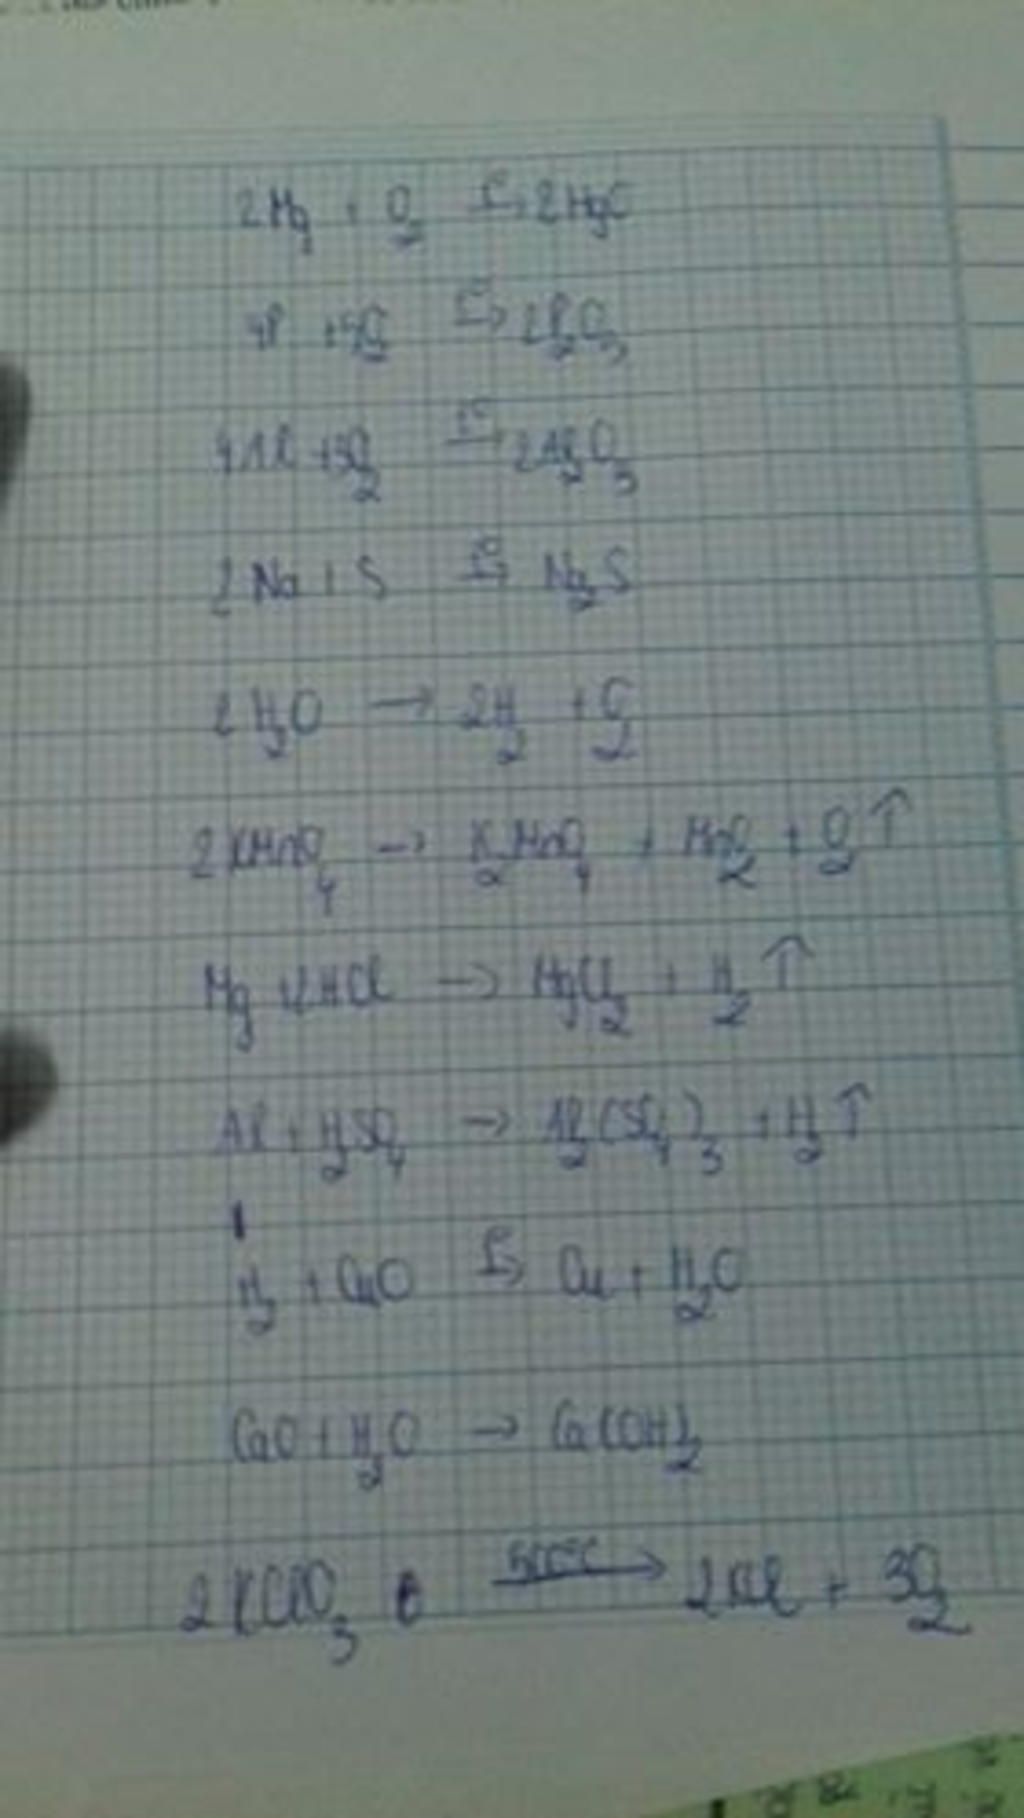 2Mg + O₂ t°→ 2MgO
4P + 5O₂ t°→ 2P₂O₅
4Al + 3O₂ t°→ 2Al₂O₃
2Na + S t°→ Na₂S
2H₂O → 2H₂ + O₂
2KMnO₄ → K₂MnO₄ + MnO₂ + O₂↑
Mg + 2HCl → MgCl₂ + H₂↑
Al + H₂SO₄ → Al₂(SO₄)₃ + H₂↑
H₂ + CuO t°→ Cu + H₂O
CaO + H₂O → Ca(OH)₂
2KClO₃ 500°C→ 2KCl + 3O₂